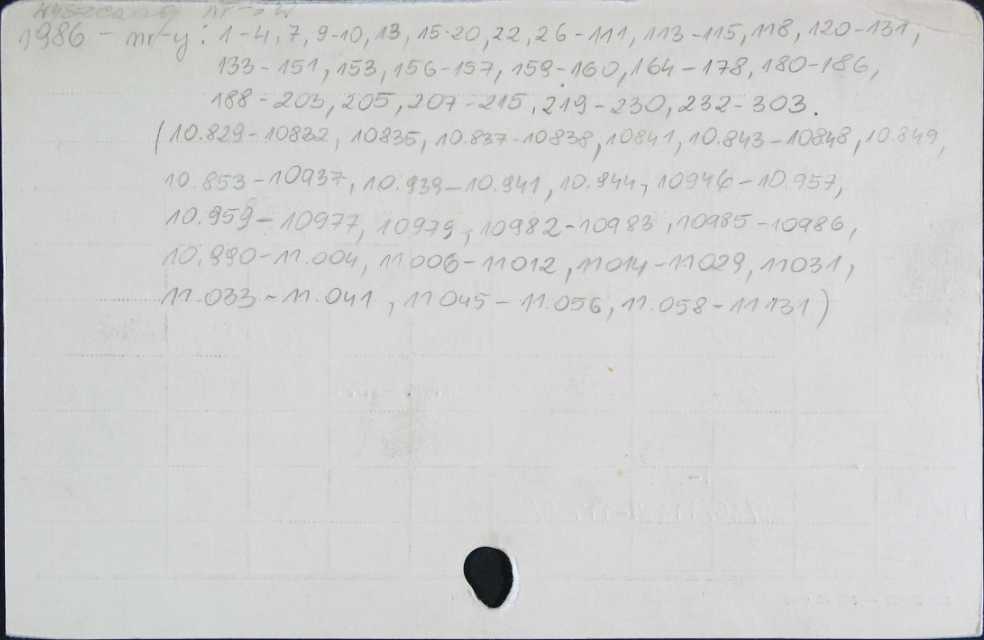 1986 - nr-y: 1-4, 7, 9-10, 13, 15-20, 22, 26-111, 113-115, 118, 120-131,
133-151, 153, 156-157, 159-160, 164-178, 180-186,
188-203, 205, 207-215, 219-230, 232-303.
(10.829-10832, 10835, 10.837-10838, 10841, 10.843-10848, 10.849,
10.853-10937, 10.939-10.941, 10.944, 10946-10.957,
10.959-10977, 10979, 10982-10983, 10985-10986,
10.990-11.004, 11006-11012, 11014-11029, 11031,
11.033-11.041, 11045-11.056, 11.058-11131)